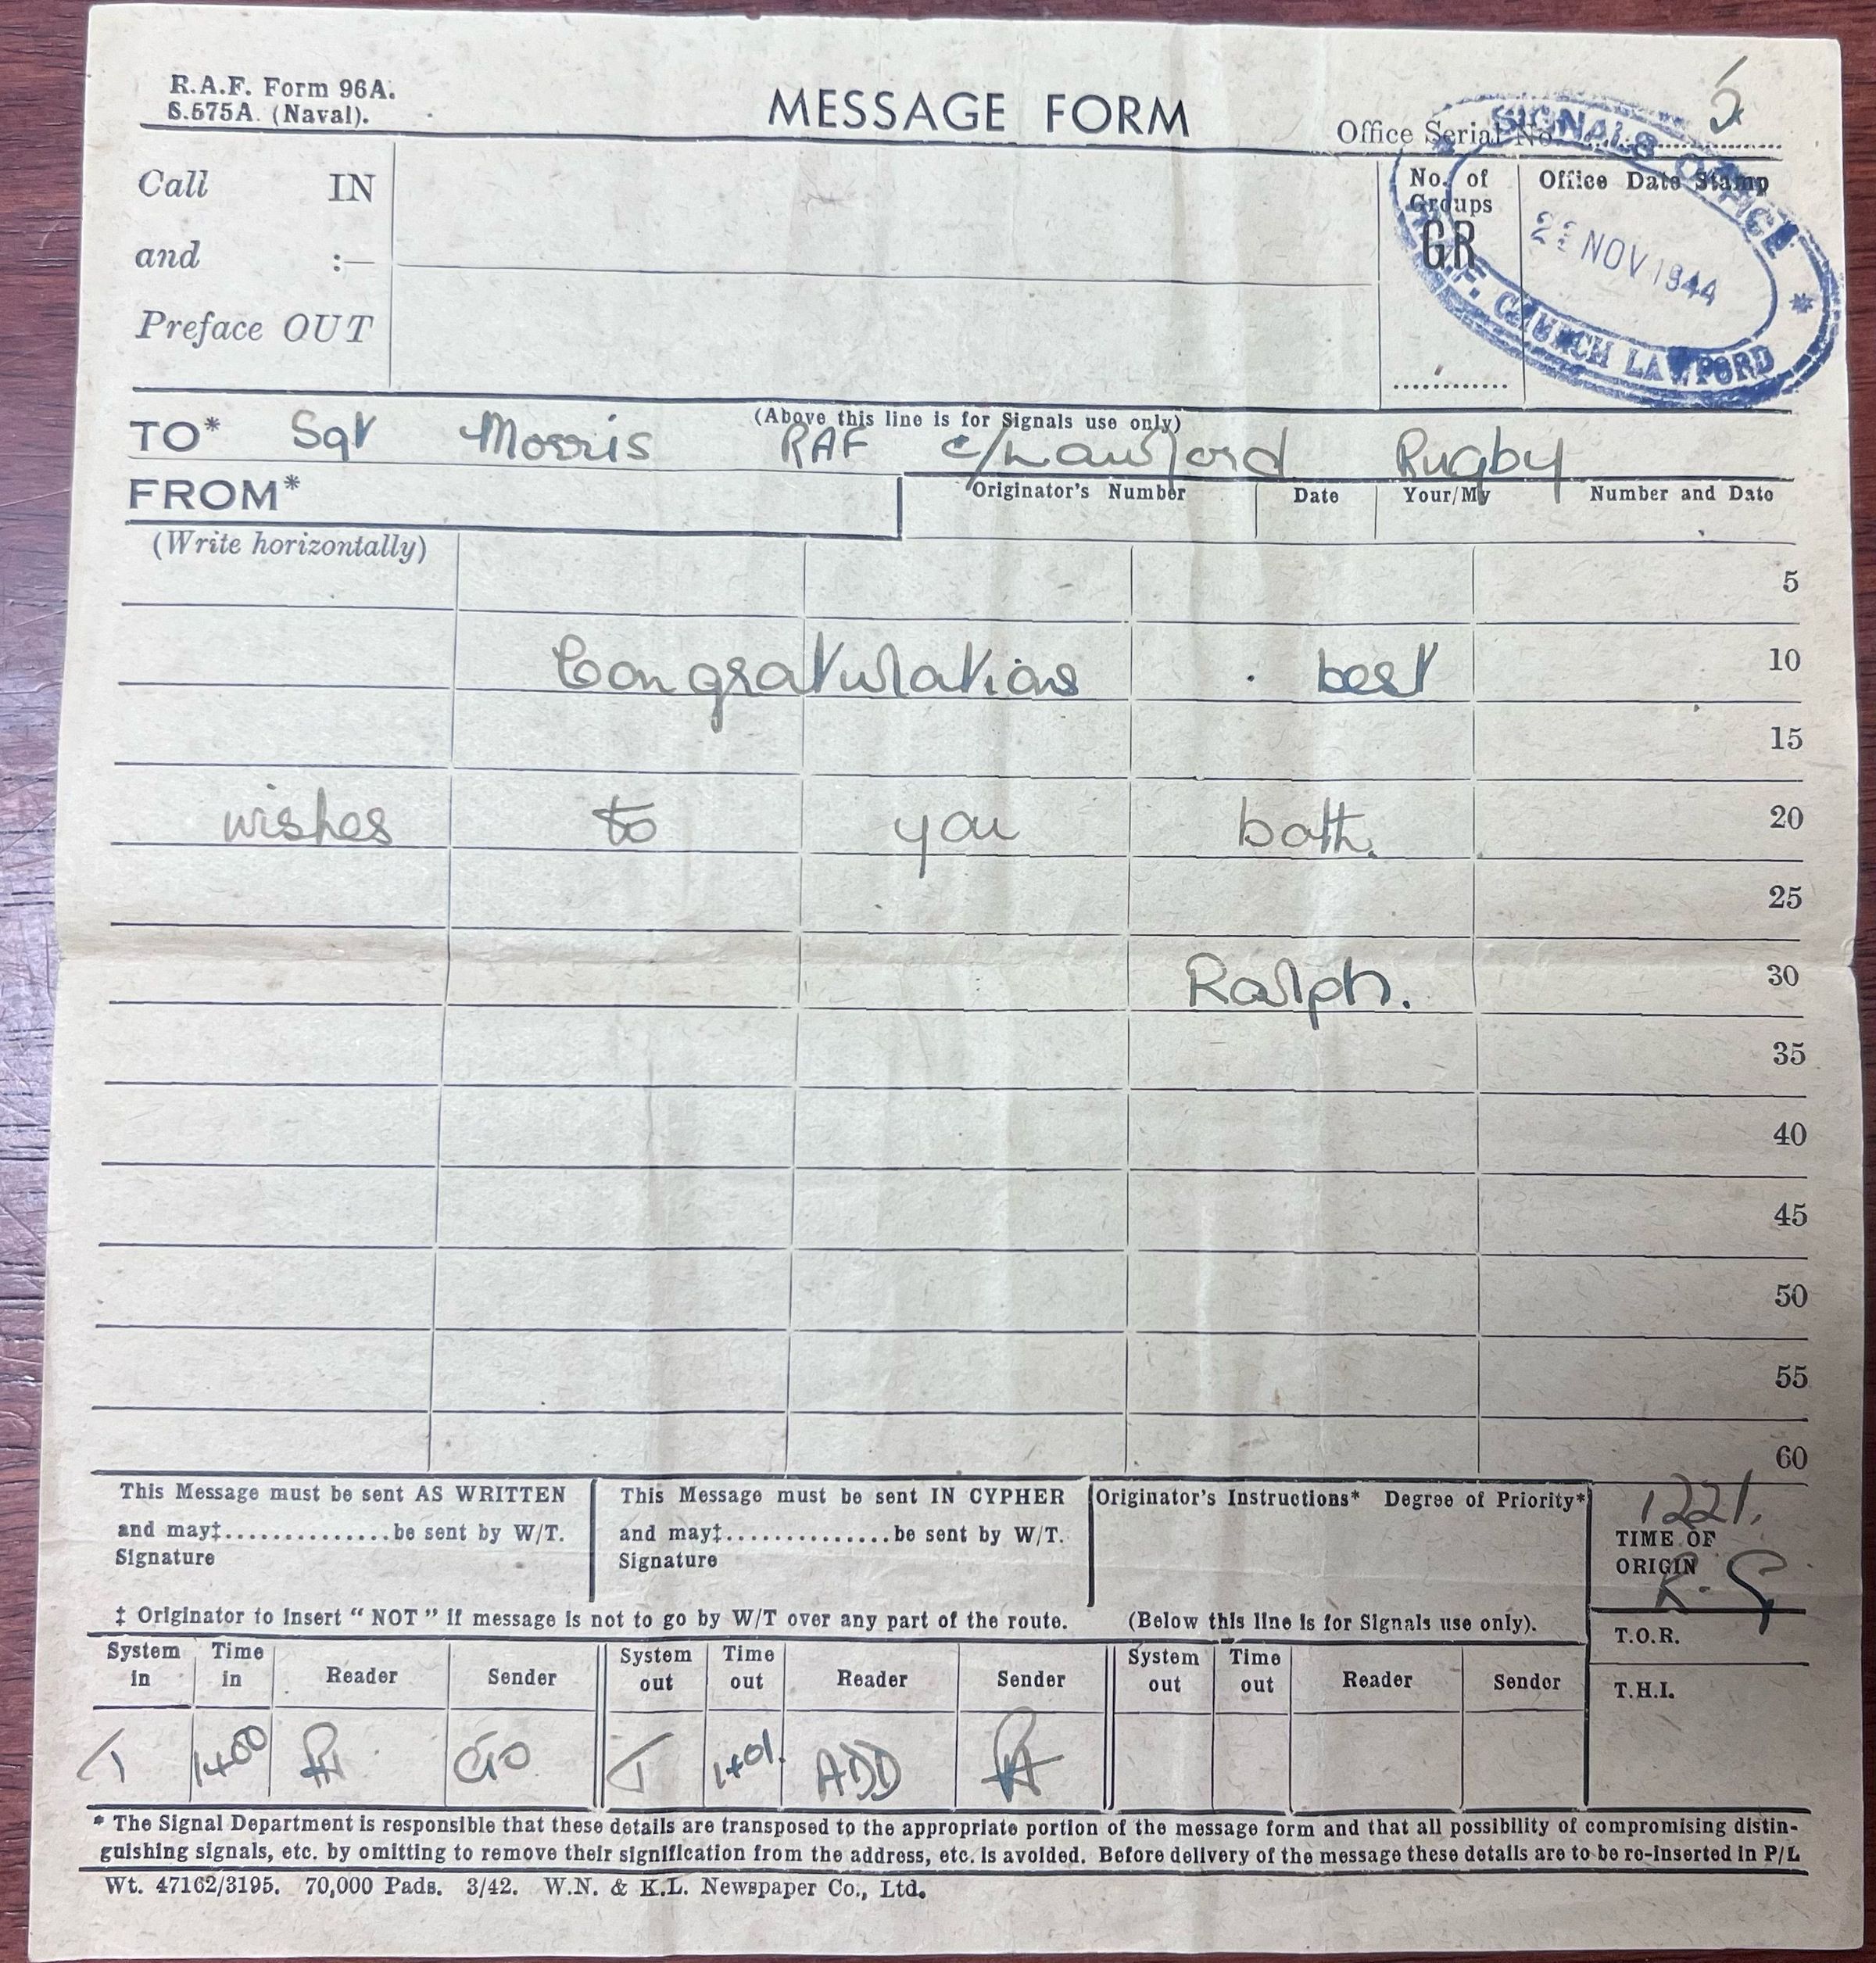 R.A.F. Form 96A.
S.575A. (Naval).
MESSAGE FORM
Office Serial No. 5
SIGNALS OFFICE
NOV 1944
CHURCH LAWFORD
Call IN
and :—
Preface OUT
No. of Groups
GR
Office Date Stamp
(Above this line is for Signals use only)
TO* Sgt Morris RAF c/Lawford Rugby
FROM*
Originator's Number Date Your/My Number and Date
(Write horizontally)
5
Congratulations . best 10
15
wishes to you both. 20
25
Ralph. 30
35
40
45
50
55
60
This Message must be sent AS WRITTEN
and may‡...............be sent by W/T.
Signature
This Message must be sent IN CYPHER
and may‡...............be sent by W/T.
Signature
Originator's Instructions* Degree of Priority*
1221.
TIME OF
ORIGIN
R.S
‡ Originator to insert "NOT" if message is not to go by W/T over any part of the route. (Below this line is for Signals use only).
T.O.R.
T.H.I.
System in Time in Reader Sender System out Time out Reader Sender System out Time out Reader Sender
T 1400 GO T 1401. ADD
* The Signal Department is responsible that these details are transposed to the appropriate portion of the message form and that all possibility of compromising distin-
guishing signals, etc. by omitting to remove their signification from the address, etc. is avoided. Before delivery of the message these details are to be re-inserted in P/L
Wt. 47162/3195. 70,000 Pads. 3/42. W.N. & K.L. Newspaper Co., Ltd.